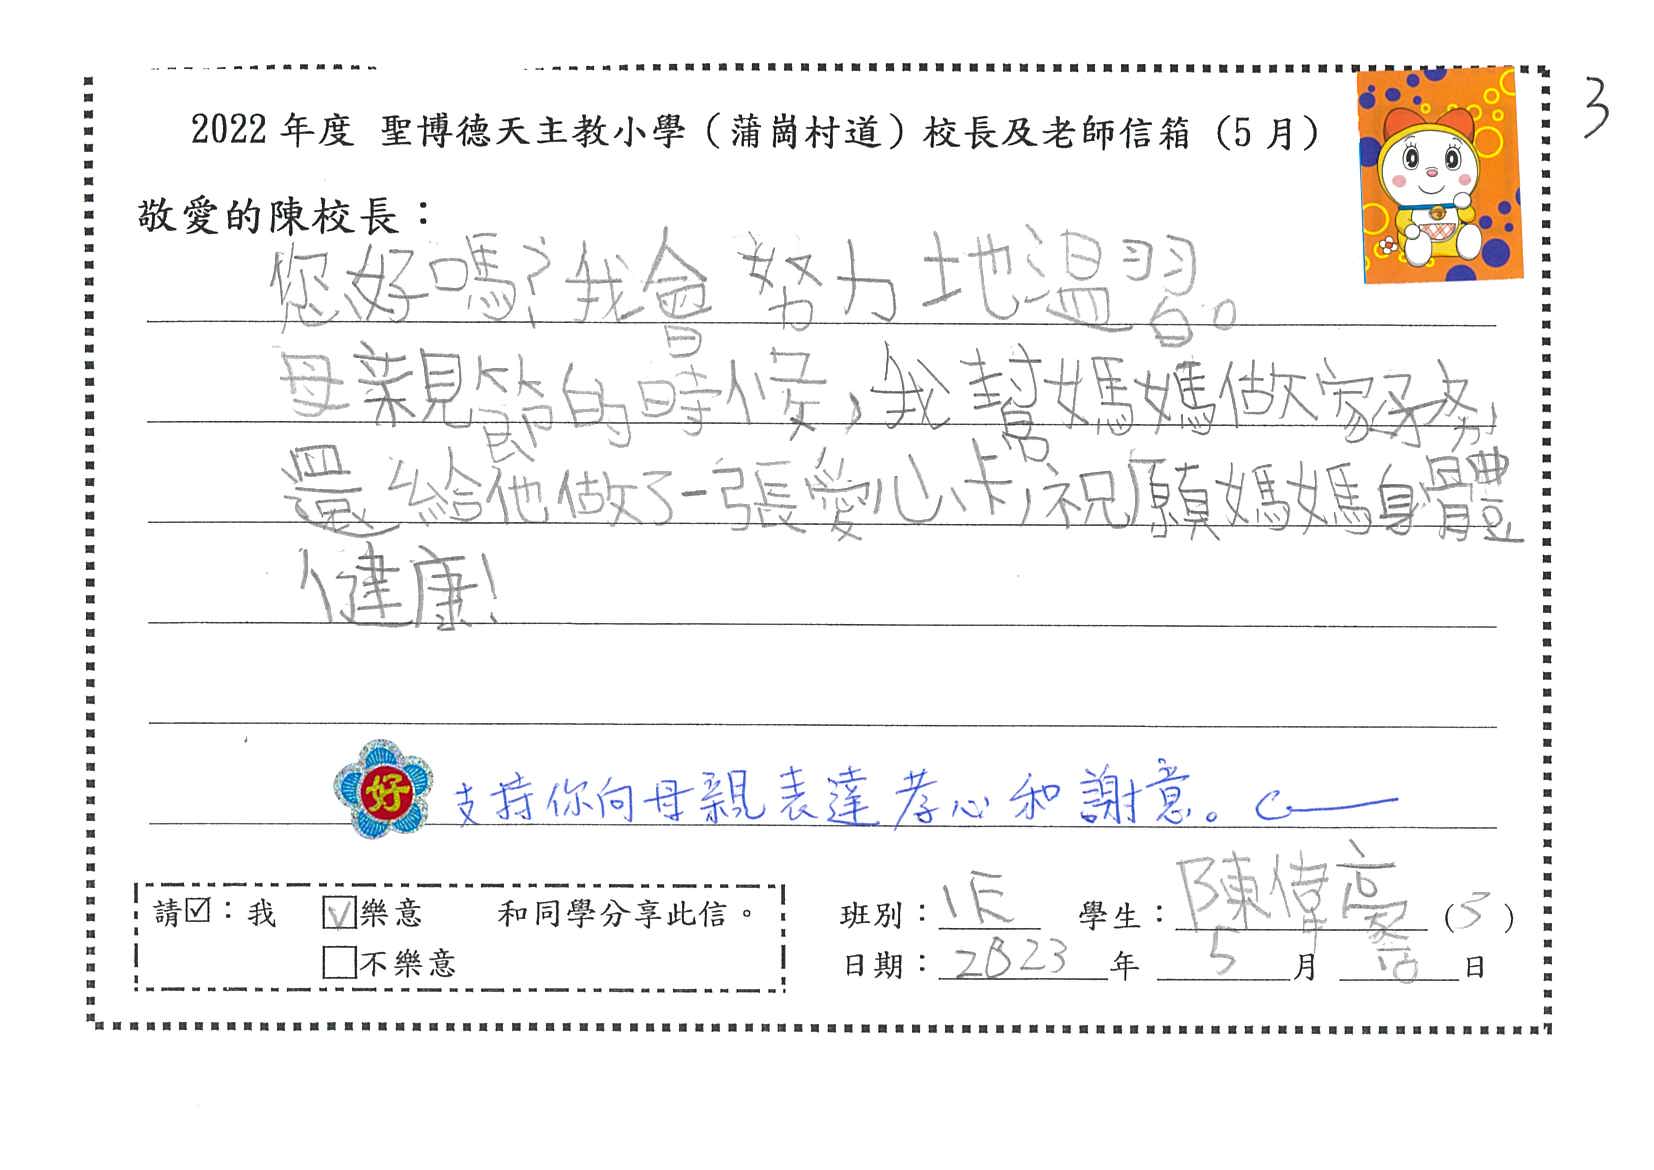 3
2022 年度 聖博德天主教小學（蒲崗村道）校長及老師信箱（5 月）
敬愛的陳校長：
您好嗎?我會努力地溫習。
母親節的時候,我幫媽媽做家務,
還給他做了一張愛心卡,祝願媽媽身體
健康!
好 支持你向母親表達孝心和謝意。
請☑：我 ☑樂意 和同學分享此信。
☐不樂意
班別：1E 學生：陳偉 (5)
日期：2023年 5月 日